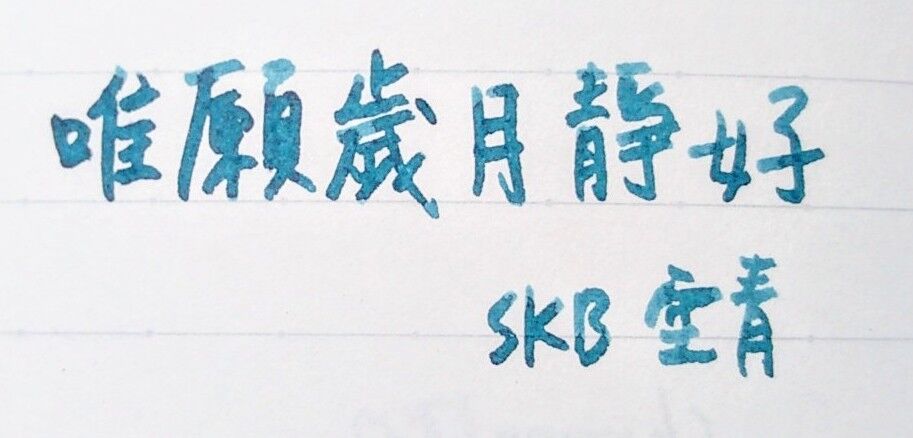 唯願歲月静好
SKB 空青